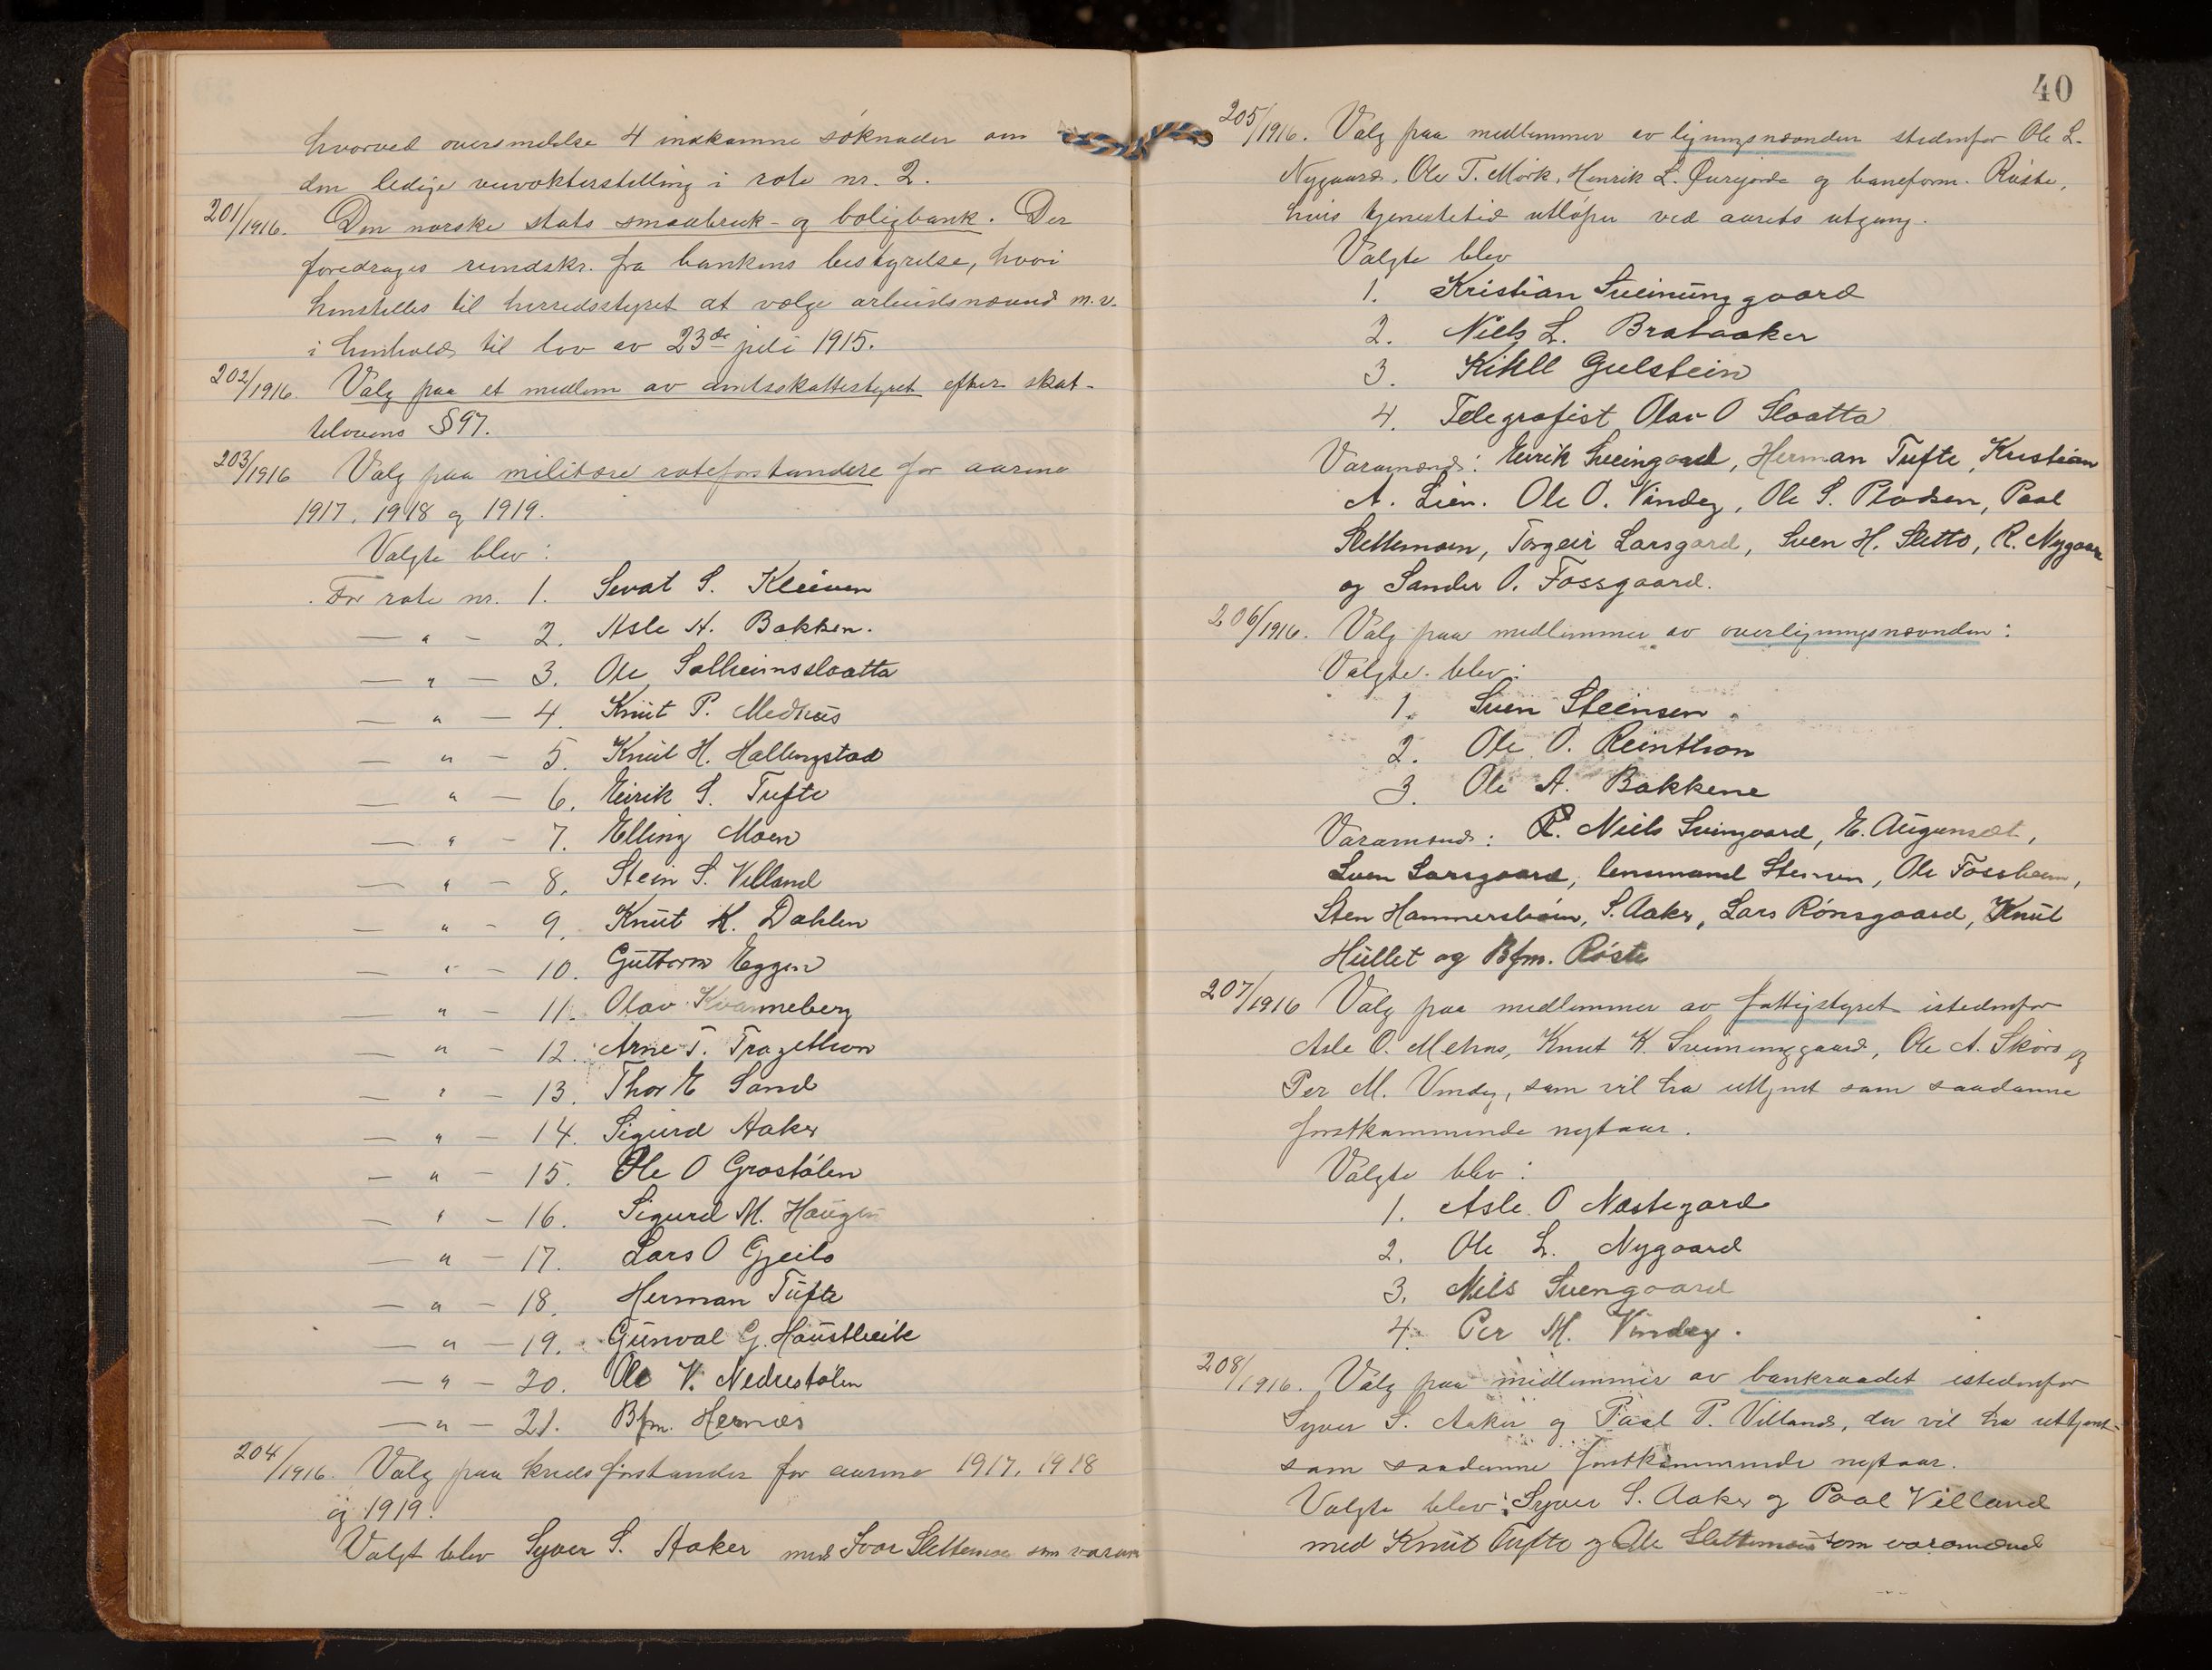 hvorved oversendelse 4 indkomne søknader om
den ledige veivokterstilling i rote nr. 2.
201/1916. Den norske stats smaabruk- og boligbank. Der
foredrages rundskr. fra bankens bestyrelse, hvori
henstilles til herredsstyret at vælge arbeidsnævnd m.v.
i henhold til lov av 23de juli 1915.
202/1916. Valg paa et medlem av amtsskattestyret efter skat-
telovens § 97.
203/1916 Valg paa militære roteforstandere for aarene
1917, 1918 og 1919.
Valgte blev:
For rote nr. 1. Sevat S. Kleiven
— " — 2. Asle A. Bakken.
— " — 3. Ole Solheimsslaatta
— " — 4. Knut P. Medhus
— " — 5. Knut H. Hallingstad
— " — 6. Eirik S. Tufte
— " — 7. Elling Moen
— " — 8. Stein S. Villand
— " — 9. Knut K. Dahlen
— " — 10. Guttorm Eggen
— " — 11. Olav Kvanneberg
— " — 12. Arne T. Tragethon
— " — 13. Thor E Sand
— " — 14. Sigurd Aaker
— " — 15. Ole O Grøstølen
— " — 16. Sigurd M. Haugen
— " — 17. Lars O Gjeilo
— " — 18. Herman Tufte
— " — 19. Gunval G. Haustveite
— " — 20. Ole V. Nedrestølen
— " — 21. Bfm. Hernæs
204/1916. Valg paa kredsforstander for aarene 1917, 1918
og 1919.
Valgt blev Syver S. Aaker med Ivar Slettemoen som varam
40
205/1916. Valg paa medlemmer av ligningsnævnden istedenfor Ole L.
Nygaard, Ole T. Mørk, Henrik L. Øvrejorde og baneform. Røste,
hvis tjenestetid utløper ved aarets utgang.
Valgte blev
1. Kristian Sveinunggaard
2. Niels L. Brataaker
3. Kittil Gulstein
4. Telegrafist Olav O Slaatta
Varamænd: Eirik Sveingaard, Herman Tufte, Kristian
A. Lien. Ole O. Vindeg, Ole S. Pladsen, Paal
Slettemoen, Torgeir Larsgard, Sven H. Sletto, R. Nygaard
og Sander O. Fossgaard.
206/1916. Valg paa medlemmer av overligningsnævnden:
Valgte blev:
1. Sven Steinsen
2. Ole O. Reinthon
3. Ole A. Bakkene
Varamænd: P. Niels Sveingaard, E. Augunset,
Sven Larsgaard, lensmand Steinsen, Ole Fossheim,
Sten Hammersbøen, S. Aaker, Lars Rønsgaard, Knut
Hullet og Bfm. Røste
207/1916 Valg paa medlemmer av fattigstyret istedenfor
Asle O. Mehus, Knut K. Sveinunggaard, Ole A. Skaro og
Per M. Vindeg, som vil ha uttjent som saadanne
førstkommende nytaar.
Valgte blev:
1. Asle O Næstegard
2. Ole L. Nygaard
3. Nils Svengaard
4. Per M. Vindeg.
208/1916. Valg paa medlemmer av bankraadet istedenfor
Syver S. Aaker og Paal P. Villand, der vil ha uttjent
som saadanne førstkommende nytaar.
Valgte blev: Syver S. Aaker og Paal Villand
med Knut Tufte og Ole Slettemoen som varamænd